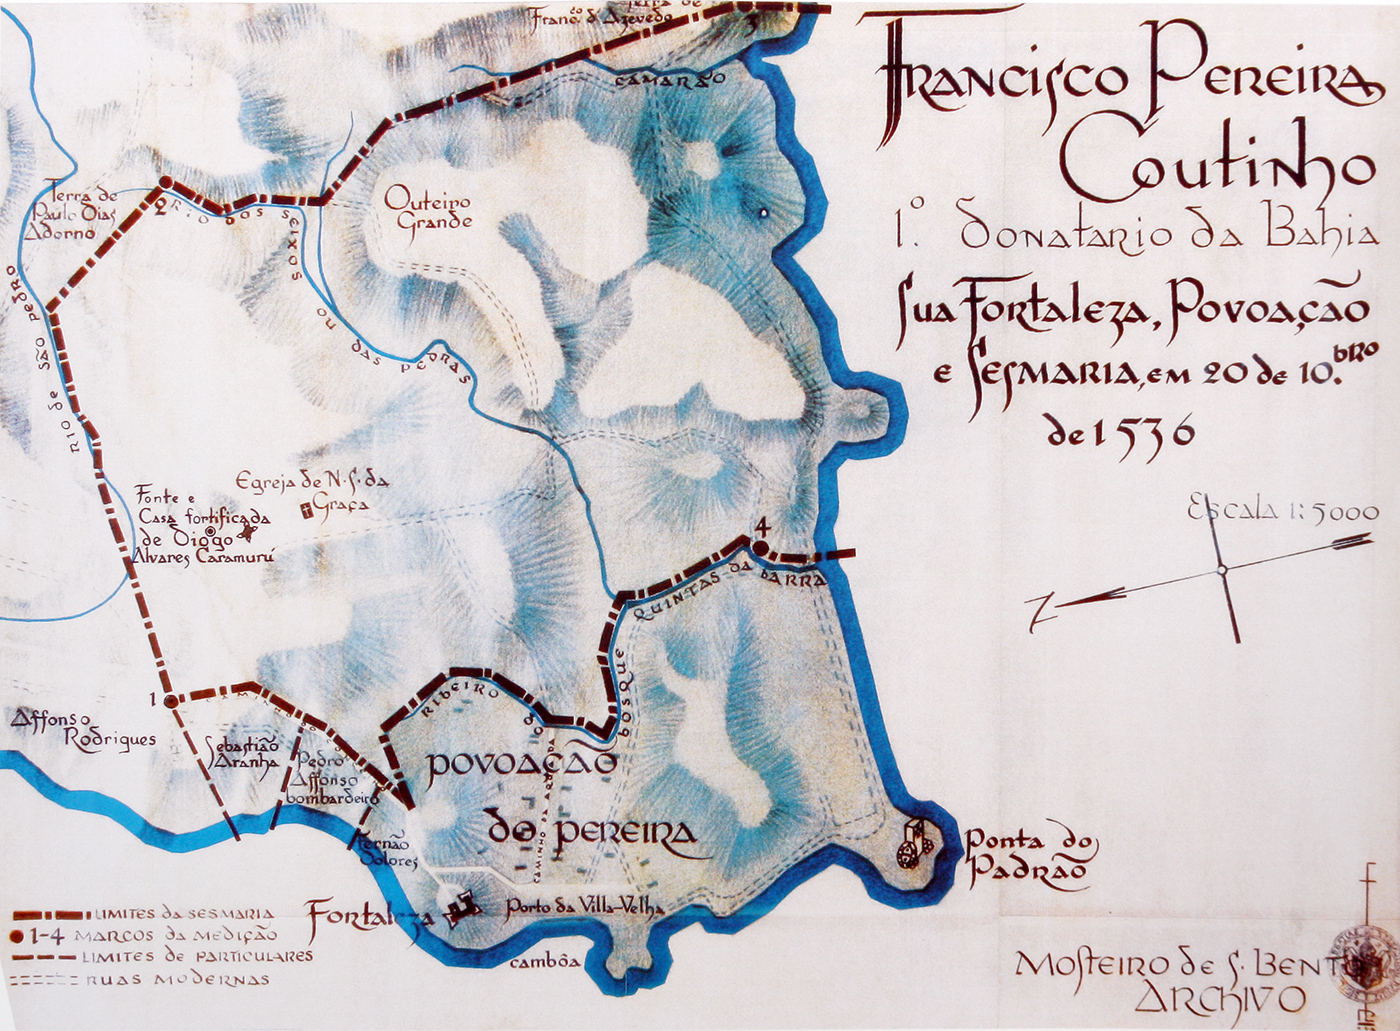 Terra de
Franº d'Azevedo
3
CAMARÃO
FRANCISCO PEREIRA
COUTINHO
1.º Donatario da Bahia
Sua Fortaleza, Povoação
e Sesmaria, em 20 de 10.bro
de 1536
Escala 1:5000
Terra de
Paulo Dias
Adorno
2
RIO DOS SEIXOS
OU
DAS PEDRAS
Outeiro
Grande
RIO DE SÃO PEDRO
Egreja de N. S. da
Graça
Fonte e
Casa fortificada
de Diogo
Alvares Caramurú
4
QUINTAS DA BARRA
BOSQUE
RIBEIRO
DO
1
Affonso
Rodrigues
Sebastião
Aranha
Pedro
Affonso
bombardeiro
Fernão
Dolores
POVOAÇÃO
DO PEREIRA
CAMINHO DA
Fortaleza
Porto da Villa-Velha
cambôa
Ponta do
Padrão
LIMITES DA SESMARIA
1-4 MARCOS DA MEDIÇÃO
LIMITES DE PARTICULARES
RUAS MODERNAS
Mosteiro de S. Bento
ARCHIVO